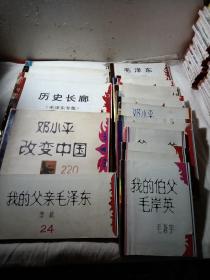 历史长廊
(毛泽东专集)
邓小平
改变中国
220
我的父亲毛泽东
李敏
24
毛泽东
邓小平
我的伯父
毛岸英
毛新宇